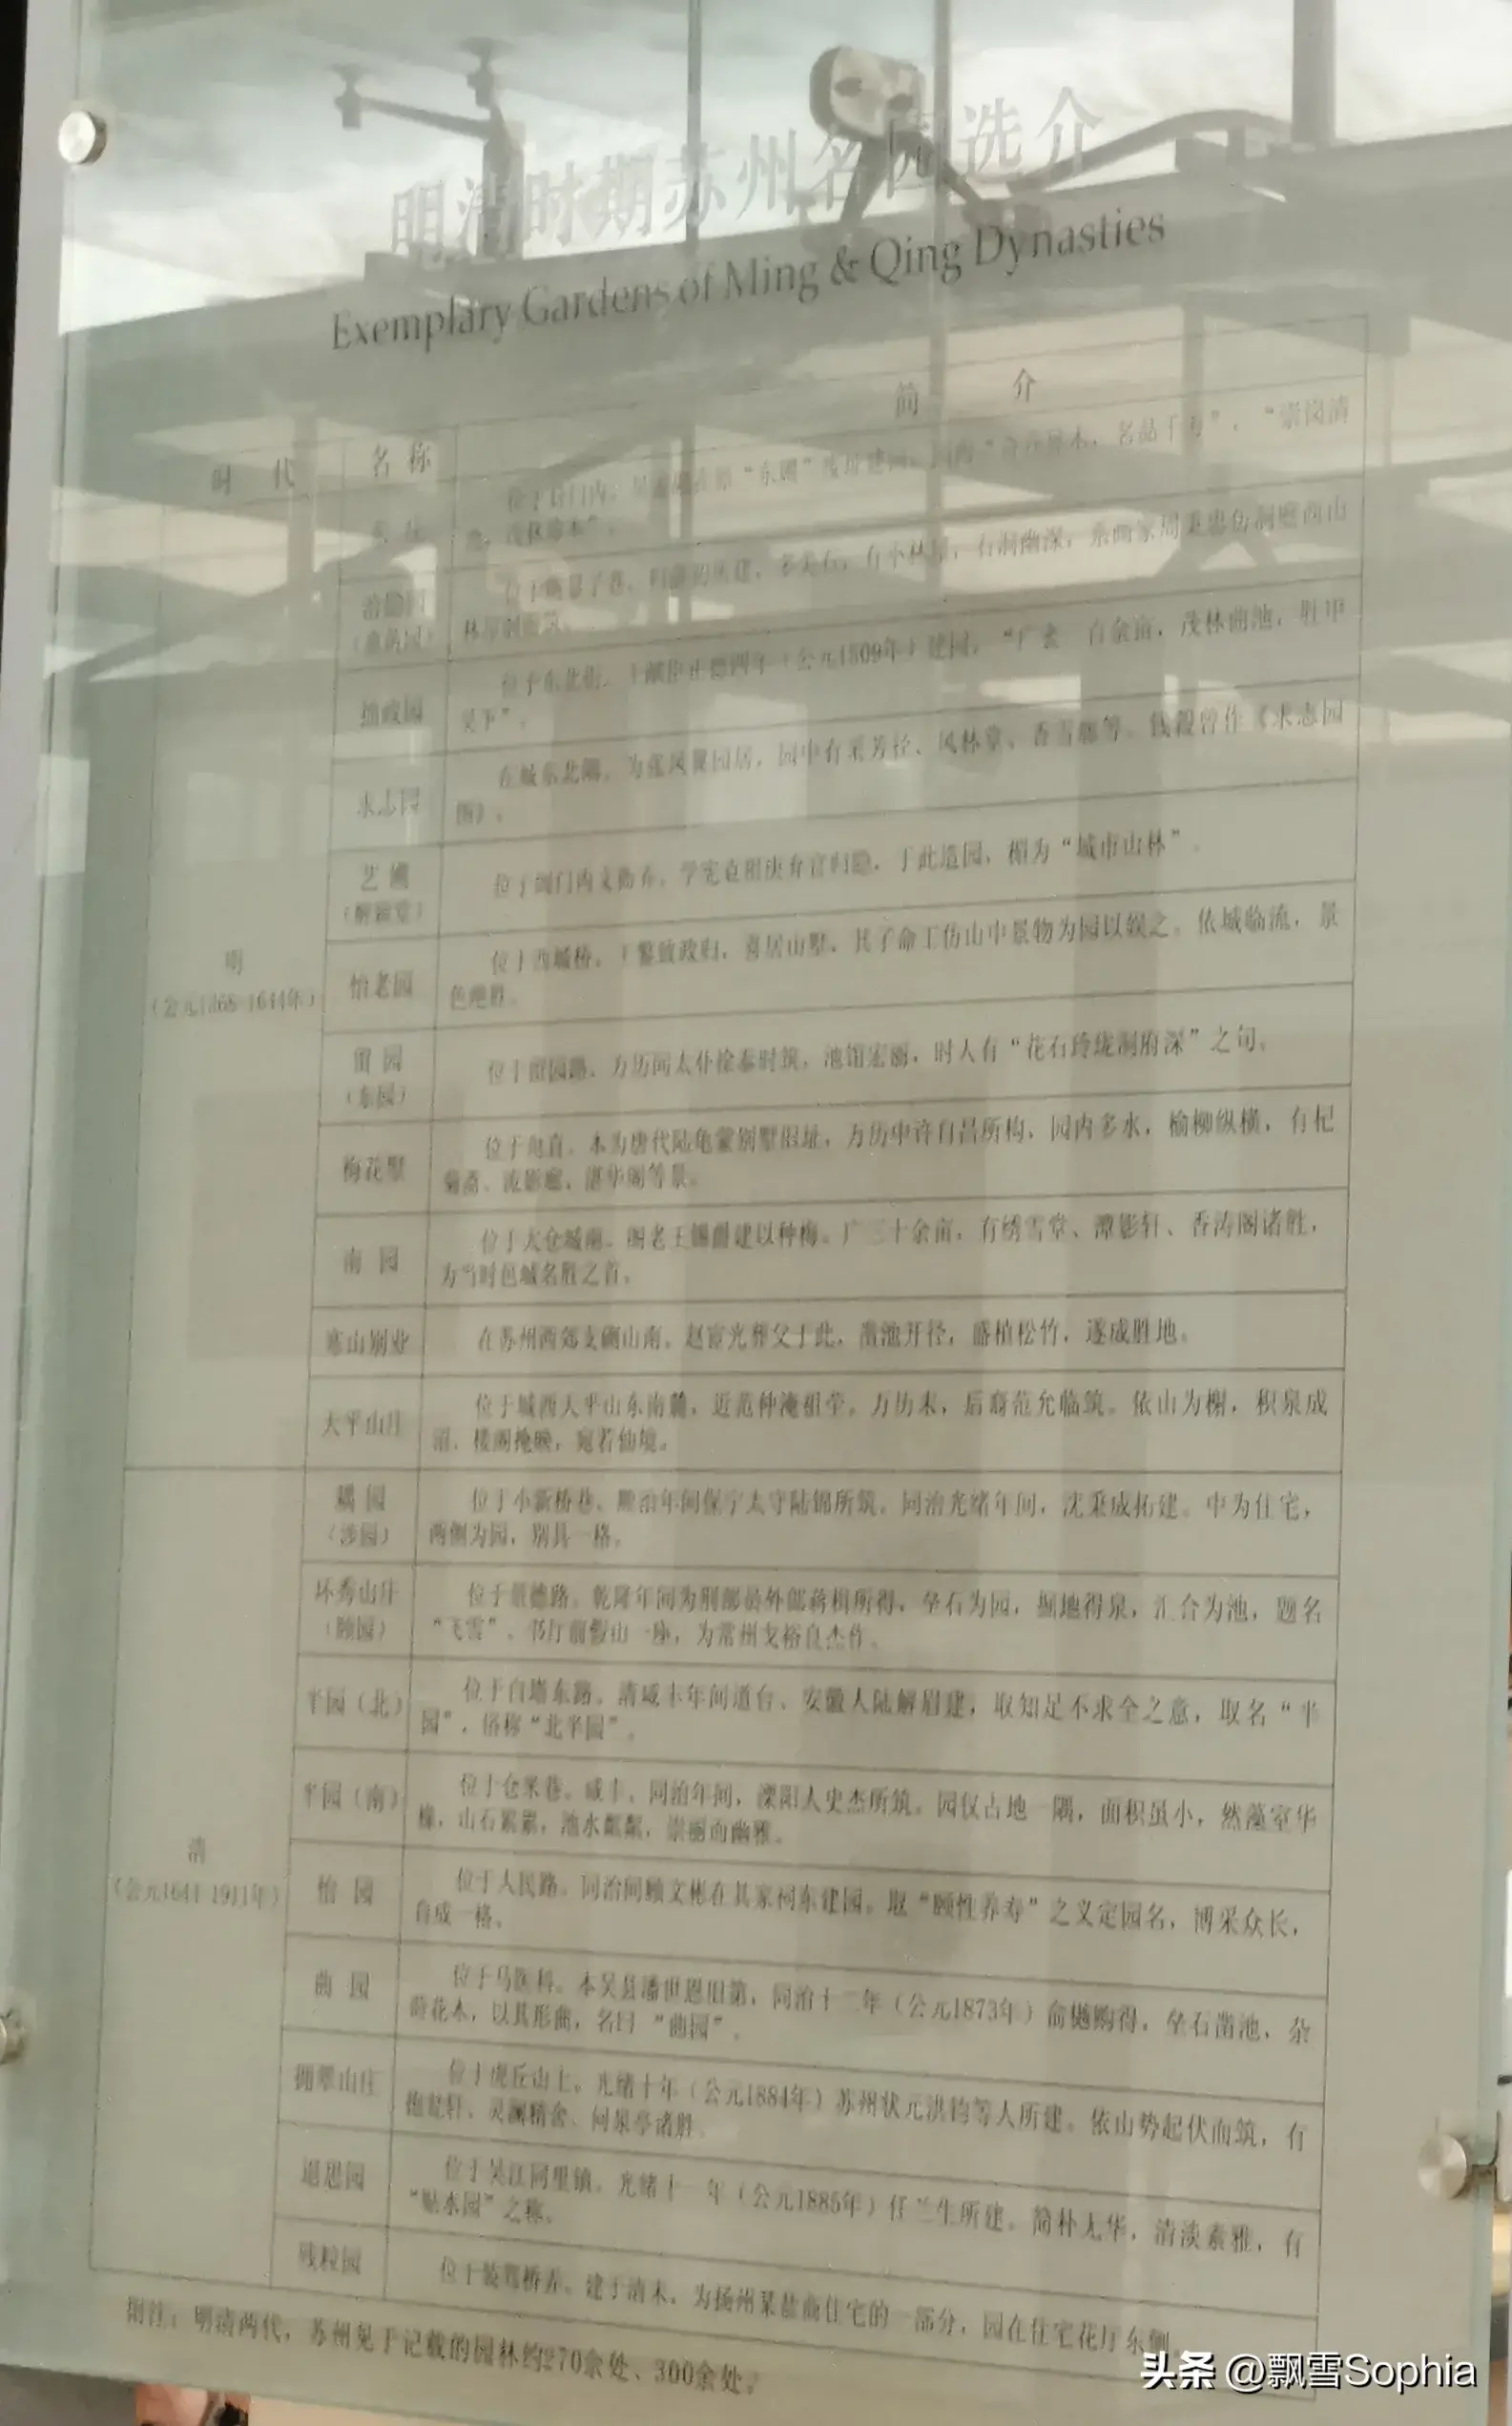 明清时期苏州名园选介
Exemplary Gardens of Ming & Qing Dynasties
时 代
名 称
简 介
明
（公元1368-1644年）
拙政园
位于东北街。 正德四年（公元1509年）建园，
百余亩，茂林曲池，胜甲
吴下”。
求志园
在城东北隅。为张凤翼园居，园中有采芳径、风林堂、香雪廊等。钱穀曾作《求志园
图》。
艺 圃
（醉颖堂）
学宪袁祖庚弃官归隐，于此造园，楣为“城市山林”。
怡老园
位于西城桥。王鏊致政归，喜居山墅，其子命工仿山中景物为园以娱之。依城临流，景
色绝胜。
留 园
（东园）
位于留园路。万历间太仆徐泰时筑，池馆宏丽，时人有“花石玲珑洞府深”之句。
梅花墅
位于甪直。本为唐代陆龟蒙别墅旧址，万历中许自昌所构，园内多水，榆柳纵横，有杞
菊斋、流影廊、湛华阁等景。
南 园
位于太仓城南。阁老王锡爵建以种梅。广三十余亩，有绣雪堂、潭影轩、香涛阁诸胜，
为当时邑城名胜之首。
寒山别业
在苏州西郊支硎山南。赵宧光葬父于此，凿池开径，盛植松竹，遂成胜地。
天平山庄
位于城西天平山东南麓，近范仲淹祖茔。万历末，后裔范允临筑。依山为榭，积泉成
沼，楼阁掩映，宛若仙境。
清
（公元1644-1911年）
耦 园
（涉园）
位于小新桥巷。顺治年间保宁太守陆锦所筑。同治光绪年间，沈秉成拓建。中为住宅，
两侧为园，别具一格。
环秀山庄
（颐园）
位于景德路。乾隆年间为刑部员外郎蒋楫所得，垒石为园，掘地得泉，汇合为池，题名
“飞雪”。书厅前假山一座，为常州戈裕良杰作。
半园（北）
位于白塔东路。清咸丰年间道台、安徽人陆解眉建，取知足不求全之意，取名“半
园”，俗称“北半园”。
半园（南）
位于仓米巷。咸丰、同治年间，溧阳人史杰所筑。园仅占地一隅，面积虽小，然藻室华
椽，山石累累，池水粼粼，崇丽而幽雅。
怡 园
位于人民路。同治间顾文彬在其家祠东建园。取“颐性养寿”之义定园名，博采众长，
自成一格。
曲 园
位于马医科。本吴县潘世恩旧第，同治十二年（公元1873年）俞樾购得。垒石凿池，杂
莳花木，以其形曲，名曰“曲园”。
拥翠山庄
位于虎丘山上。光绪十年（公元1884年）苏州状元洪钧等人所建。依山势起伏而筑，有
抱瓮轩、灵澜精舍、问泉亭诸胜。
退思园
位于吴江同里镇。光绪十一年（公元1885年）任兰生所建。简朴无华，清淡素雅，有
“贴水园”之称。
残粒园
位于装驾桥弄。建于清末，为扬州某盐商住宅的一部分，园在住宅花厅东侧。
附注：明清两代，苏州见于记载的园林约270余处、300余处。
头条 @飘雪Sophia